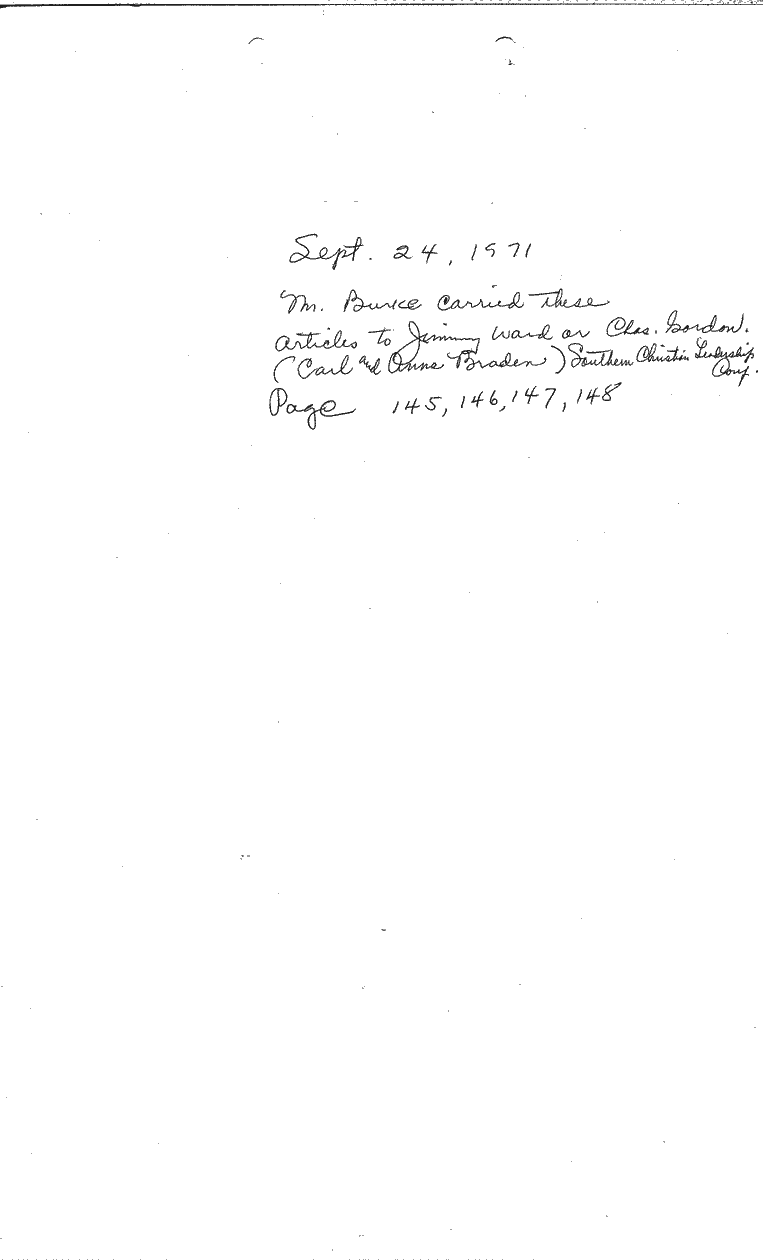 Sept. 24, 1971
M. Burke Carried these
articles to Jimmy Ward or Chas. Gordon.
(Carl and Anne Braden) Southern Christian Leadership
Conf.
Page 145, 146, 147, 148